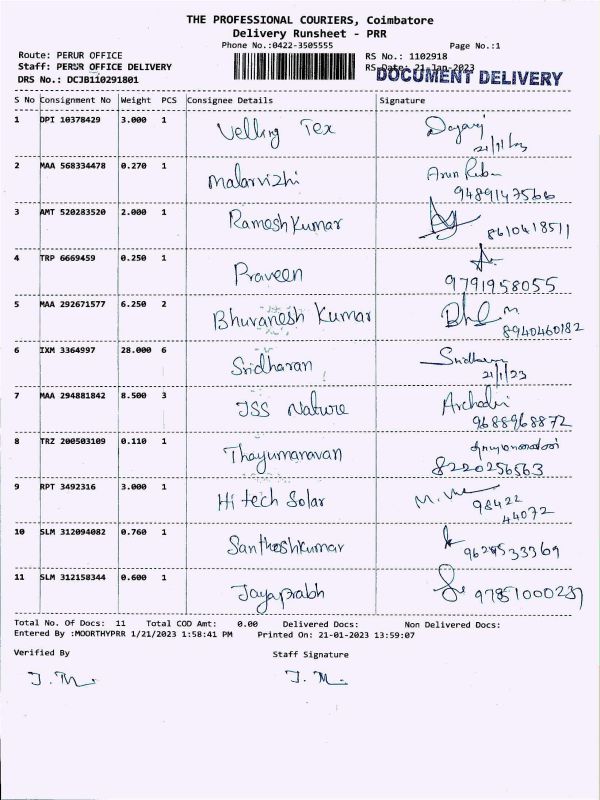 THE PROFESSIONAL COURIERS, Coimbatore
Delivery Runsheet - PRR
Phone No.:0422-3505555 Page No.:1
Route: PERUR OFFICE RS No.: 1102918
Staff: PERUR OFFICE DELIVERY RS Date: 21-Jan-2023
DOCUMENT DELIVERY
DRS No.: DCJB110291801
S No Consignment No Weight PCS Consignee Details Signature
1 DPI 10378429 3.000 1 Velling Tex
21/1/23
2 MAA 568334478 0.270 1 Malarvizhi
9489147566
3 AMT 520283520 2.000 1 Ramesh Kumar
8610418511
4 TRP 6669459 0.250 1 Praveen
9791958055
5 MAA 292671577 6.250 2 Bhuvanesh Kumar
8940460182
6 IXM 3364997 28.000 6 Sridharan
21/1/23
7 MAA 294881842 8.500 3 JSS Nature
9688968872
8 TRZ 200503109 0.110 1 Thayumanavan
8220256563
9 RPT 3492316 3.000 1 Hi tech Solar
98422
44072
10 SLM 312094082 0.760 1 Santhoshkumar
11 SLM 312158344 0.600 1 Jayaprabh
Total No. Of Docs: 11 Total COD Amt: 0.00 Delivered Docs: Non Delivered Docs:
Entered By :MOORTHYPRR 1/21/2023 1:58:41 PM Printed On: 21-01-2023 13:59:07
Verified By Staff Signature